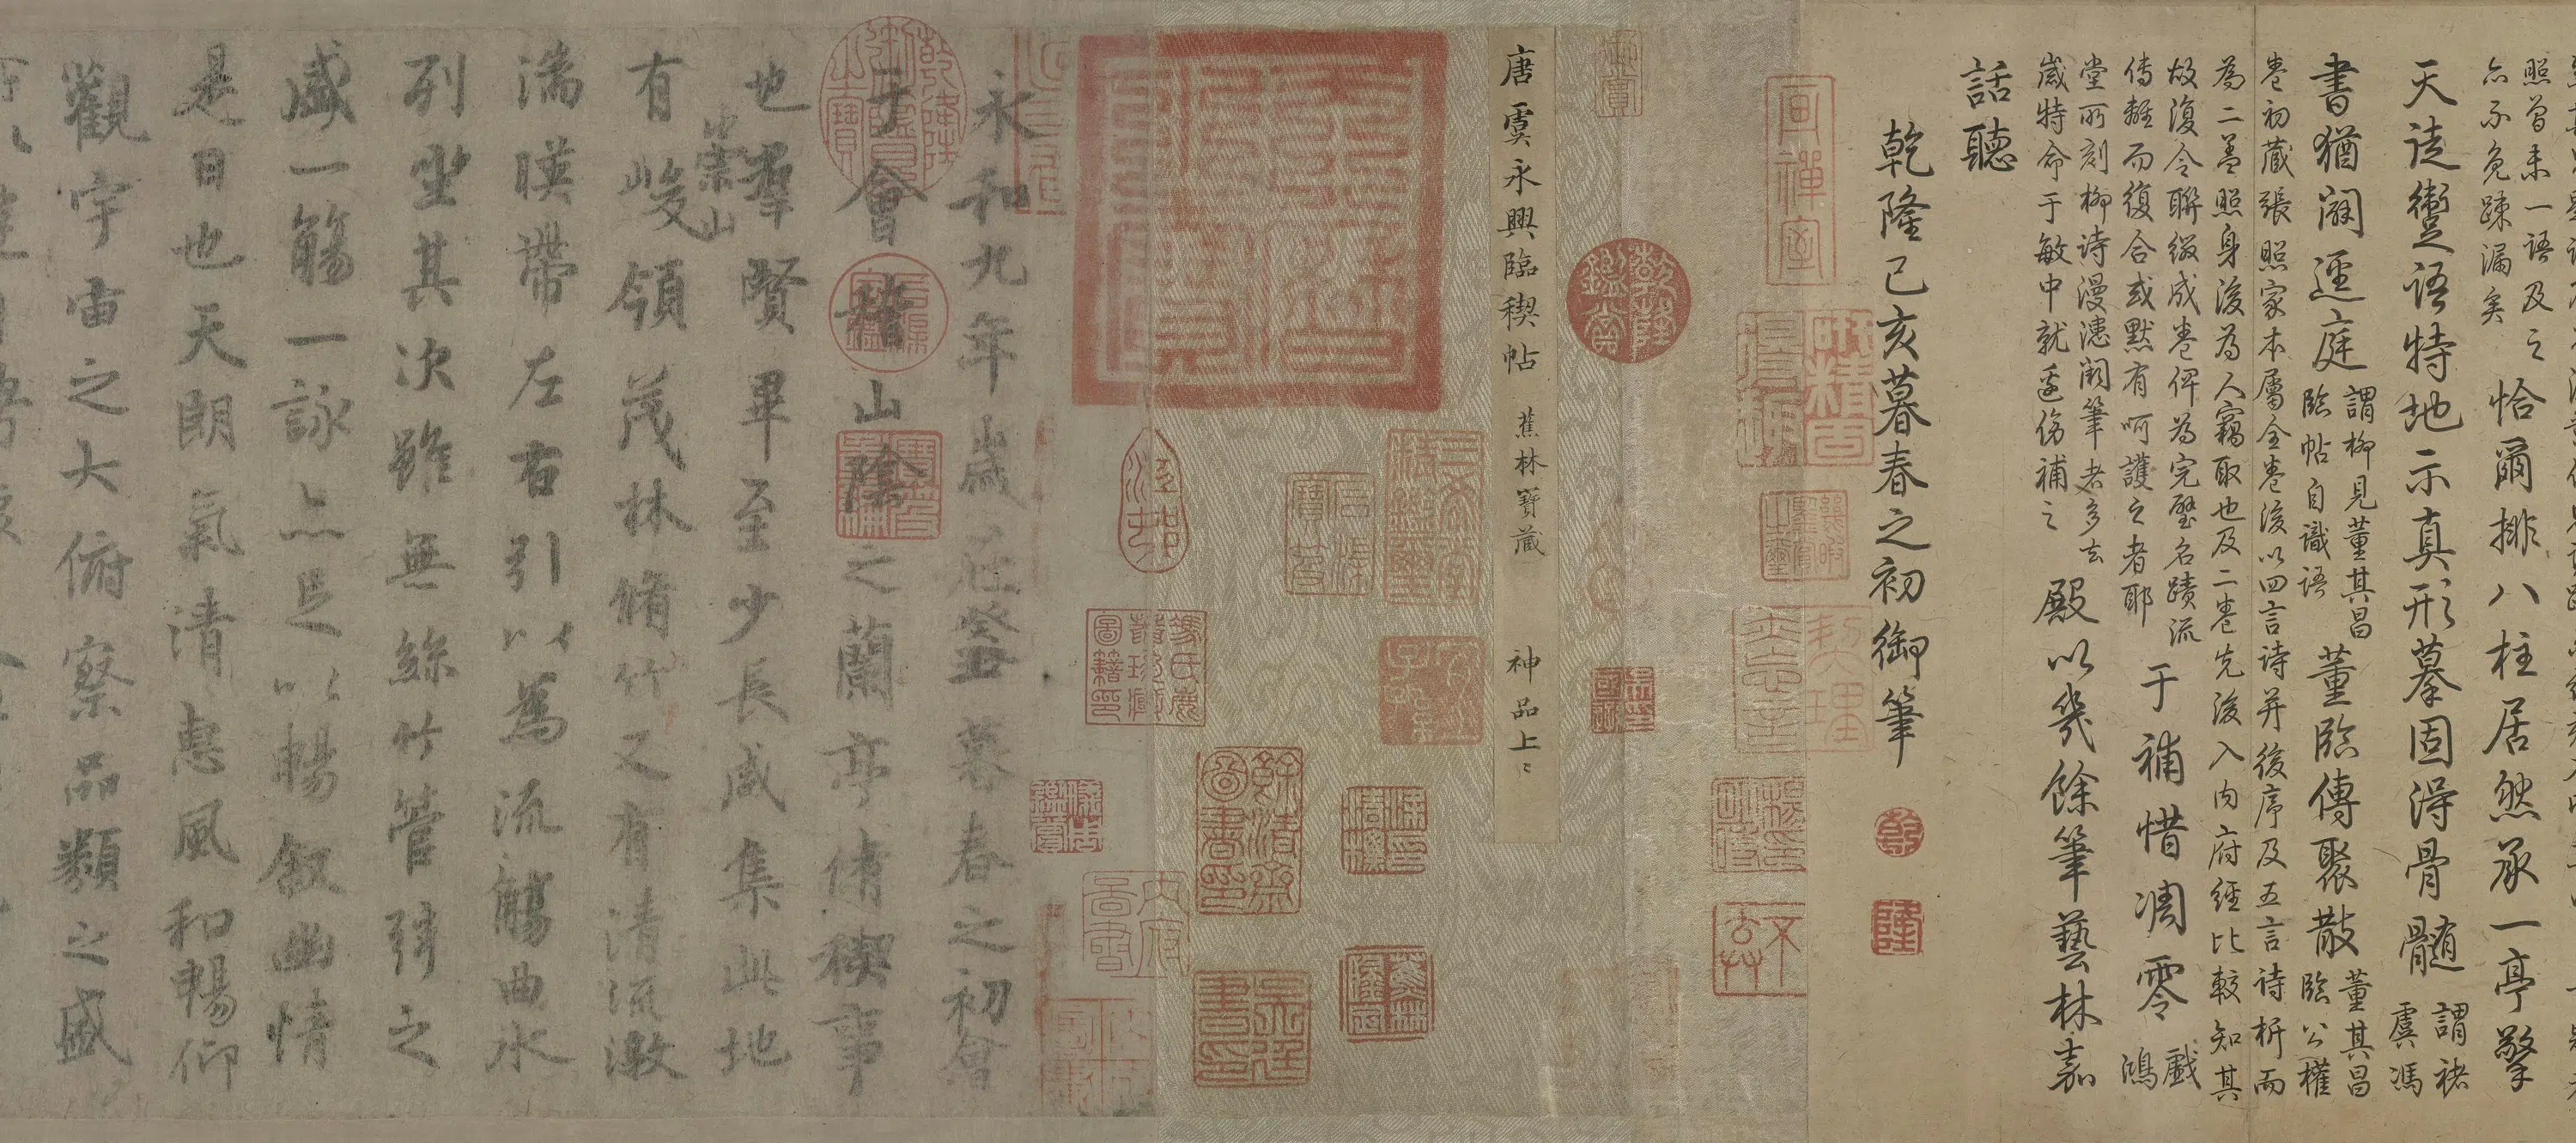 照曾未一語及之
亦不免踈漏矣
恰爾排八柱居然承一亭擎
天徒躗語特地示真形摹固得骨髓
謂褚
虞馮
書猶闢逕庭
謂柳見董其昌
臨帖自識語
董臨傳聚散
董其昌
臨公權
卷初藏張照家本屬全卷後以四言詩并後序及五言詩析而
為二蓋照身後為人竊取也及二卷先後入內府經比較知其
故復令聯綴成卷俾為完璧名蹟流
傳離而復合或默有呵護之者耶
于補惜凋零
戲
鴻
堂所刻柳詩漫漶闕筆者多去
歲特命于敏中就邊傍補之
殿以幾餘筆藝林嘉
話聽
乾隆己亥暮春之初御筆
乾
隆
乾隆鑑賞
唐虞永興臨稧帖 蕉林寶藏 神品上上
永和九年歲在癸丑暮春之初會
于會稽山陰之蘭亭脩稧事
也羣賢畢至少長咸集此地
有崇山峻領茂林脩竹又有清流激
湍暎帶左右引以為流觴曲水
列坐其次雖無絲竹管弦之
盛一觴一詠亦足以暢叙幽情
是日也天朗氣清惠風和暢仰
觀宇宙之大俯察品類之盛